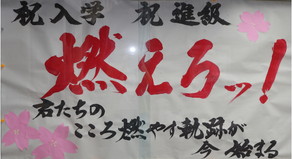 祝入学 祝進級
燃えろッ!
君たちの
こころ燃やす軌跡が
今 始まる